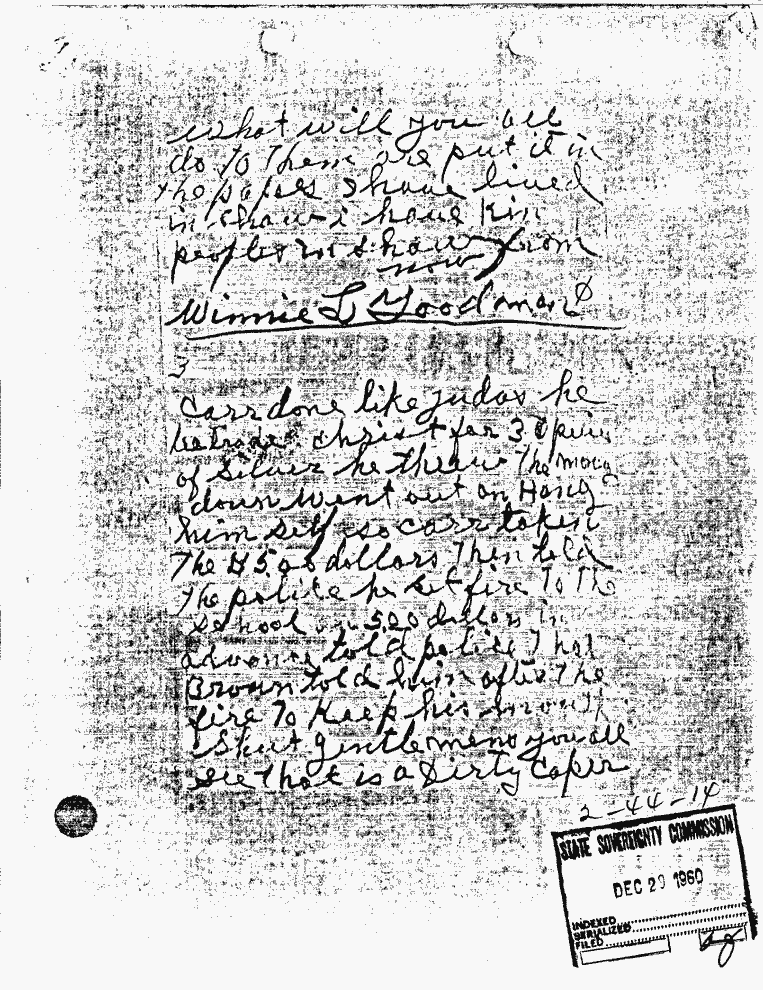 what will you all
do to them are put it in
the papers I have lived
in shaw i have kin
peoples in shaw from
now
Winnie L Goodman
3
Carr done like judas he
betrade christ for 30 peices
of silver he threw The money
down went out an Hang
him self so carr taken
The $500 dollars Then told
The police he set fire To The
school on 500 dollars in
advance told police That
Brown told him after The
fire To Keep his mouth
Shut gentlemens you all
see that is a Dirty Caper
2-44-14
STATE SOVEREIGNTY COMMISSION
DEC 29 1960
INDEXED
SERIALIZED
FILED